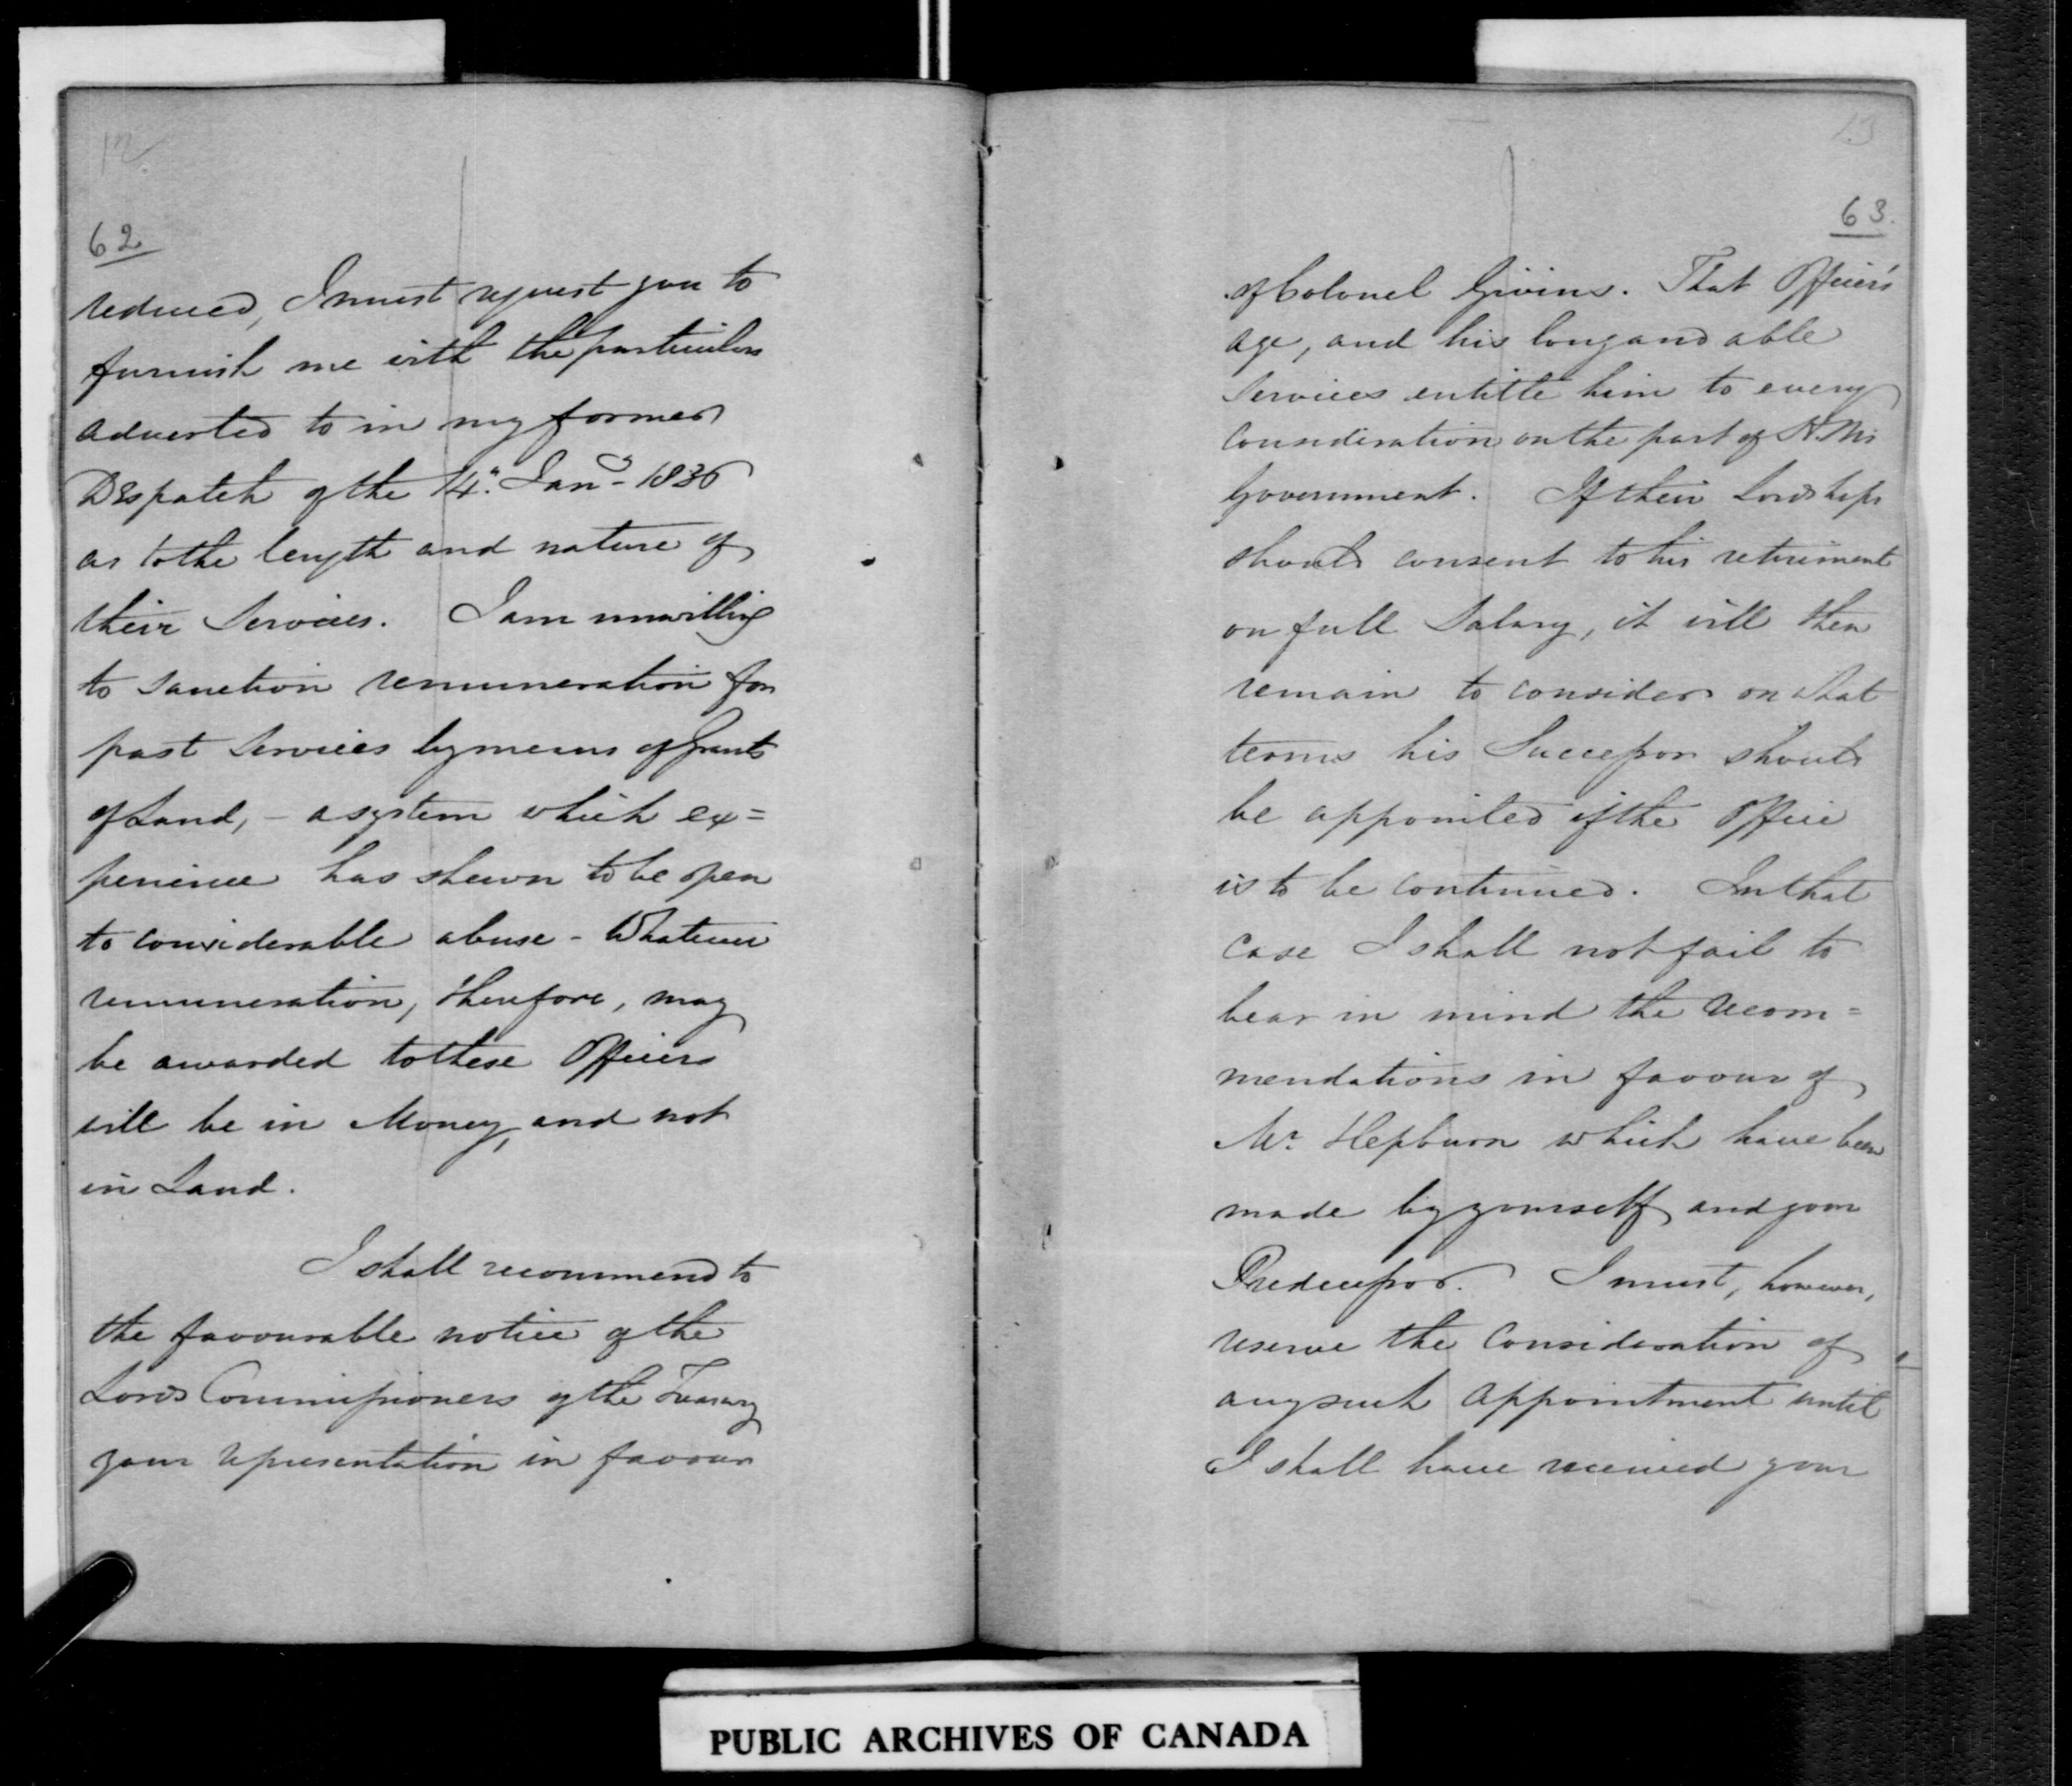 12
62
reduced, I must request you to
furnish me with the particulars
adverted to in my former
Despatch of the 14th Jany 1836
as to the length and nature of
their Services. I am unwilling
to sanction remuneration for
past services by means of Grants
of Land, – a system which ex=
perience has shewn to be open
to considerable abuse – Whatever
remuneration, therefore, may
be awarded to these Officers
will be in Money, and not
in Land.
I shall recommend to
the favourable notice of the
Lords Commissioners of the Treasury
your representation in favour
13
63.
of Colonel Givins. That Officer's
age, and his long and able
services entitle him to every
consideration on the part of H. M's
Government. If their Lordships
should consent to his retirement
on full Salary, it will then
remain to consider on what
terms his Successor should
be appointed if the Office
is to be continued. In that
case I shall not fail to
bear in mind the recom=
mendations in favour of
Mr. Hepburn which have been
made by yourself and your
Predecessor. I must, however,
reserve the consideration of
any such appointment until
I shall have received your
PUBLIC ARCHIVES OF CANADA